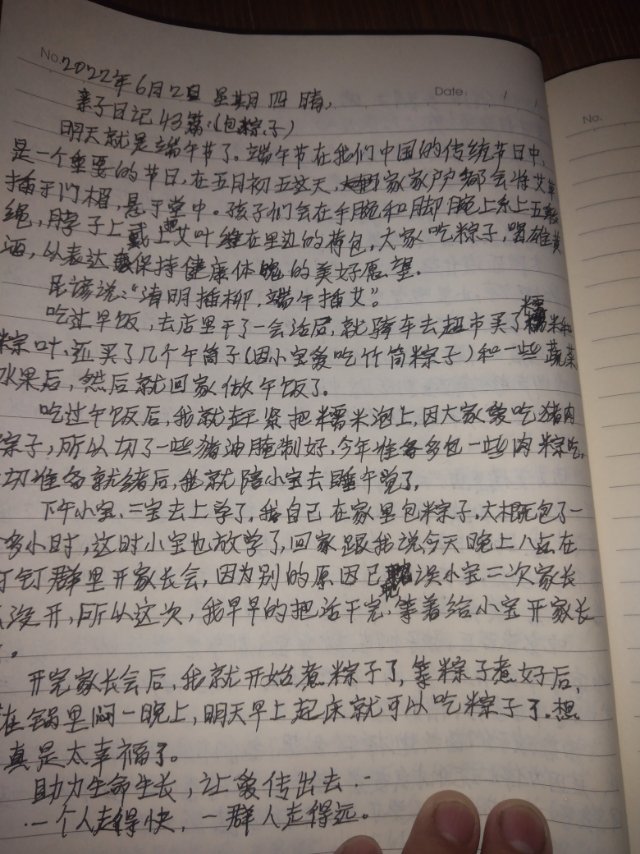 No.
Date: / /
No.
2022年6月2日 星期四 晴,
亲子日记43篇,(包粽子)
明天就是端午节了。端午节在我们中国的传统节日中,
是一个重要的节日,在五月初五这天,家家户户都会将艾草
插于门楣,悬于堂中。孩子们会在手腕和脚腕上系上五彩
绳,脖子上戴上把艾叶缝在里边的荷包,大家吃粽子,喝雄黄
酒,以表达保持健康体魄的美好愿望。
民谚说:“清明插柳,端午插艾”。
吃过早饭,去店里干了一会活后,就骑车去超市买了糯米和
粽叶,还买了几个午筒子(因小宝爱吃竹筒粽子)和一些蔬菜
水果后,然后就回家做午饭了。
吃过午饭后,我就赶紧把糯米泡上,因大家爱吃猪肉
粽子,所以切了一些猪油腌制好,今年准备多包一些肉粽吃,
切准备就绪后,我就陪小宝去睡午觉了,
下午小宝、三宝去上学了,我自己在家里包粽子,大概包了一
多小时,这时小宝也放学了,回家跟我说今天晚上八点在
钉群里开家长会,因为别的原因已误小宝二次家长
没开,所以这次,我早早的把活干完,等着给小宝开家长
。
开完家长会后,我就开始煮粽子了,等粽子煮好后,
在锅里闷一晚上,明天早上起床就可以吃粽子了。想
真是太幸福了。
助力生命生长,让爱传出去..
一个人走得快,一群人走得远。